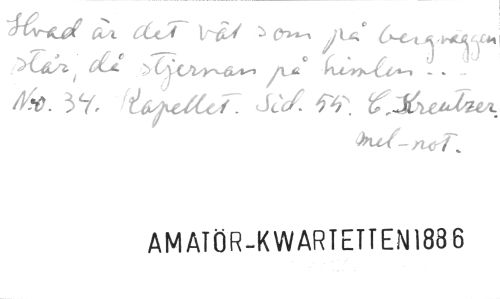 Hvad är det vät som på bergväggen
står, då stjernan på himlen...
No. 34. Kapellet. Sid. 55. C. Kreutzer.
mel-not.
AMATÖR-KWARTETTEN 1886